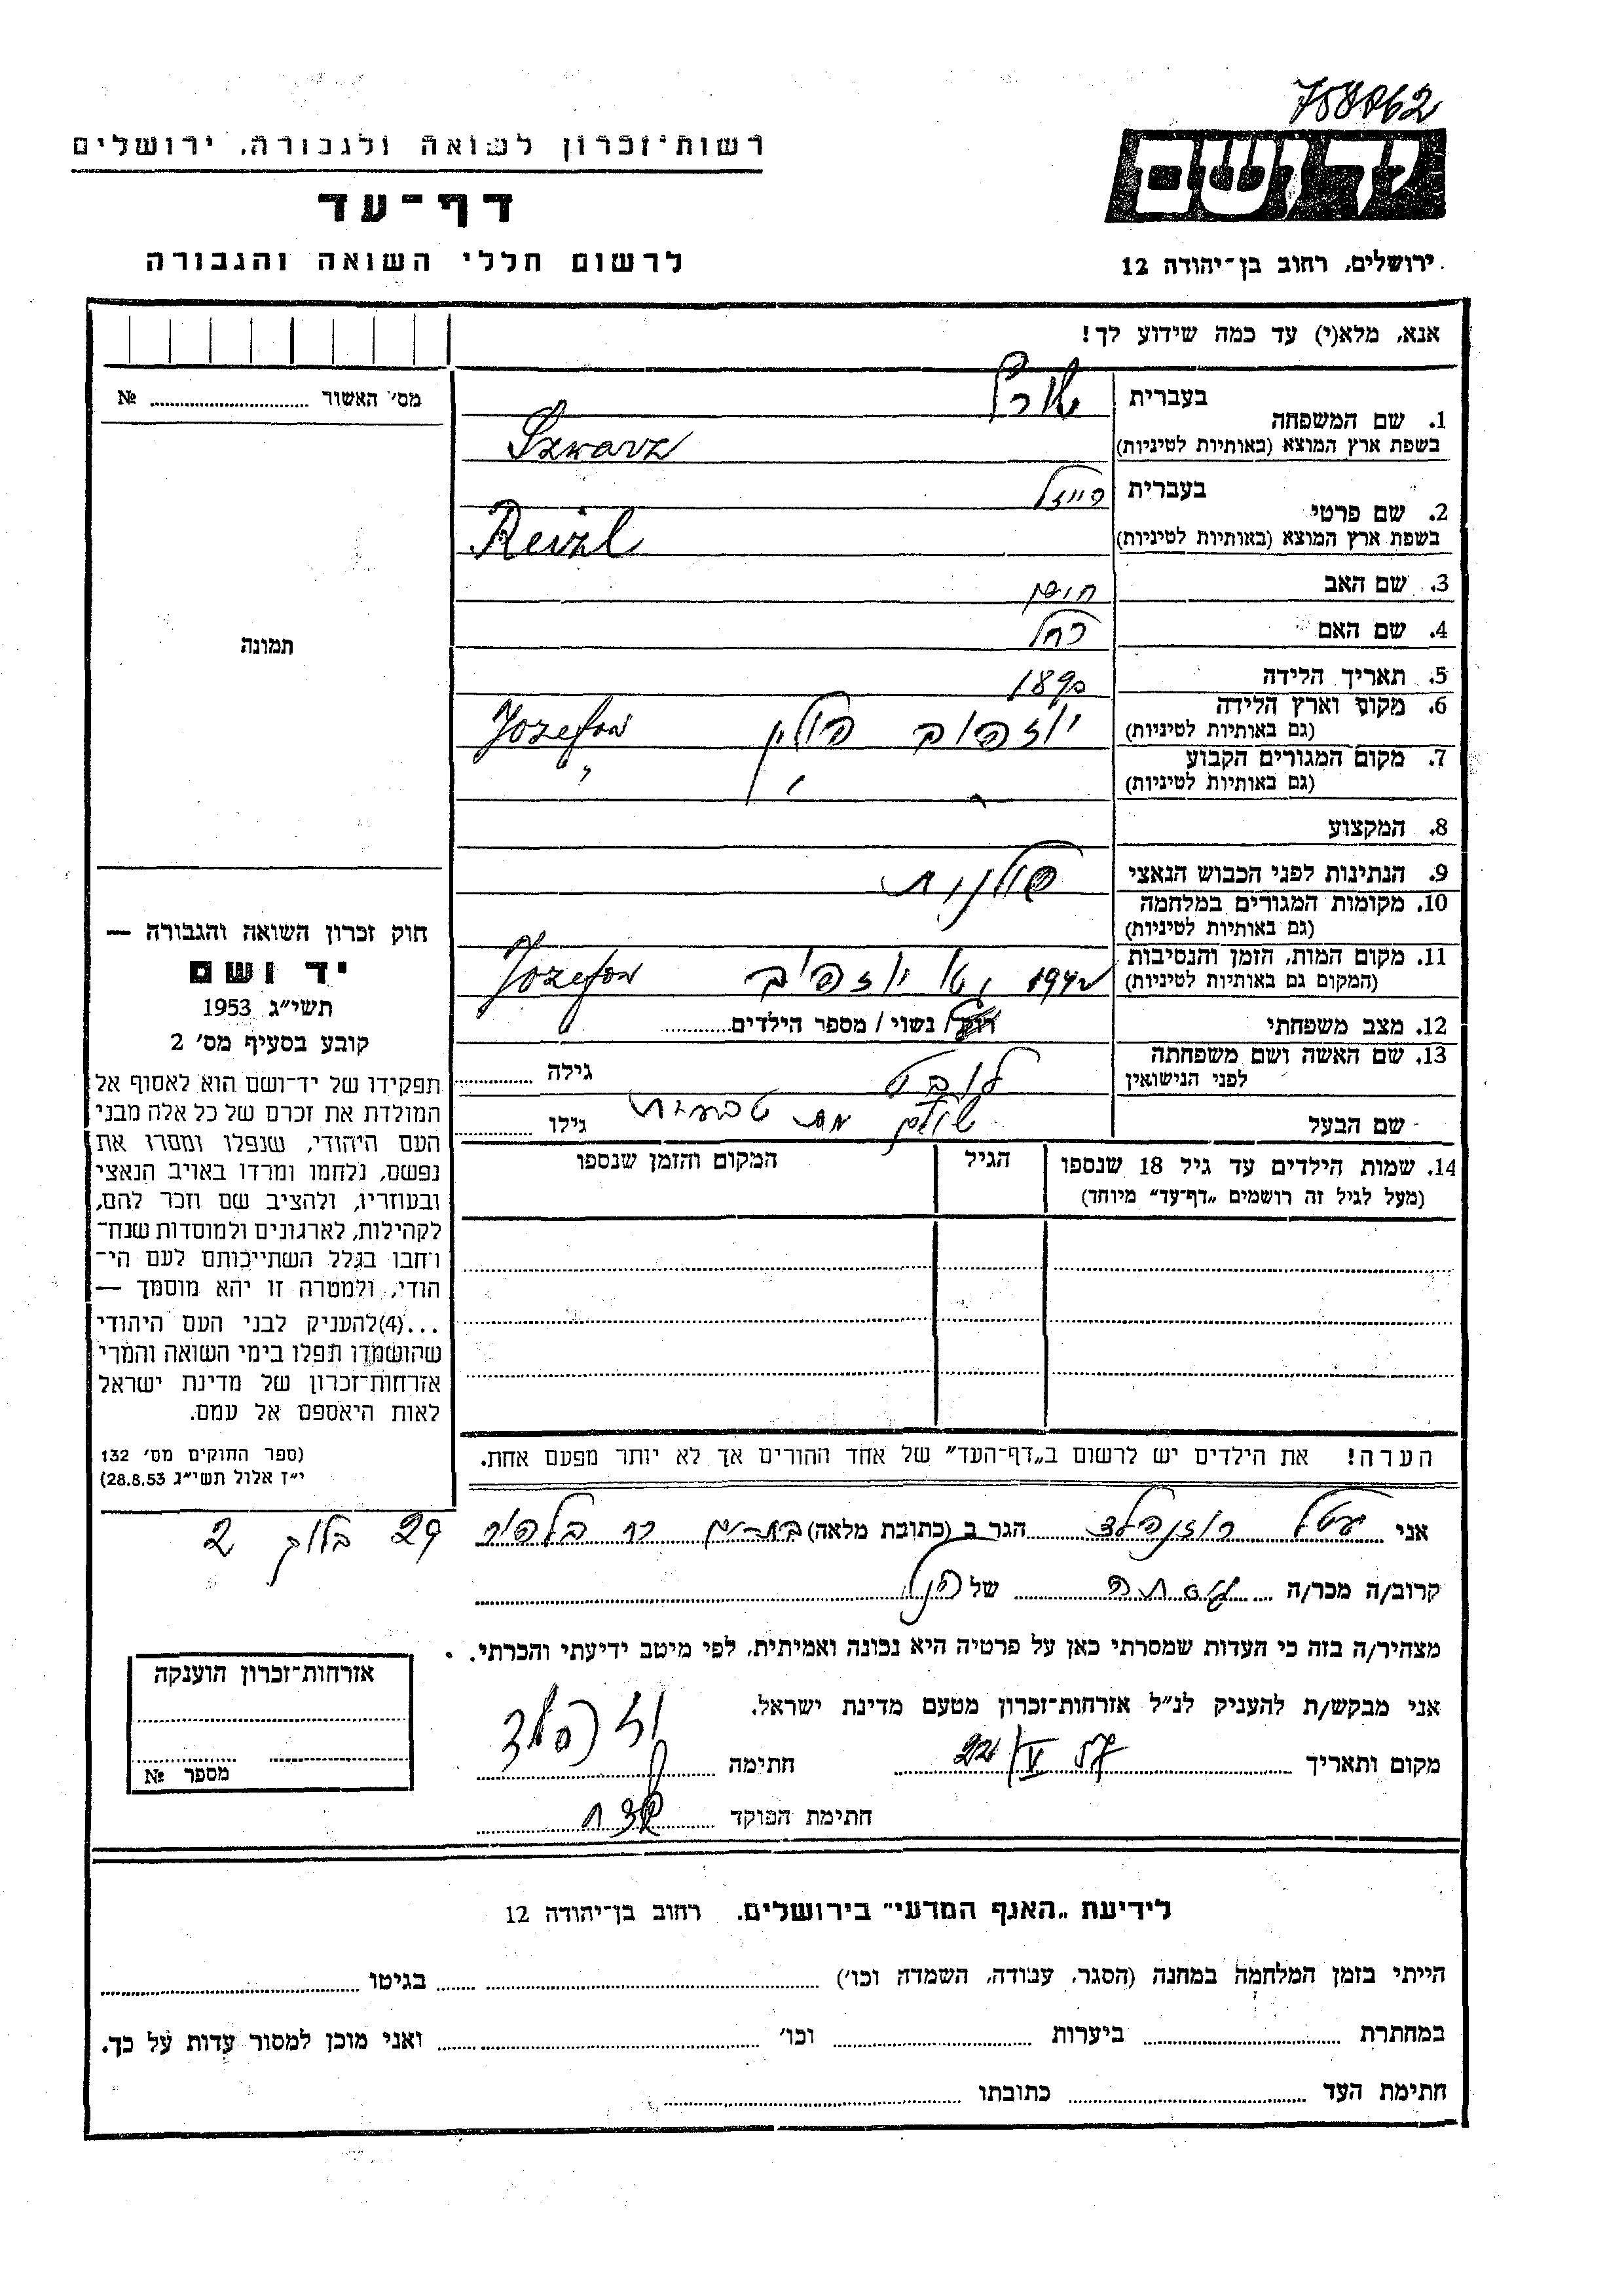 758862
יד ושם
רשות־זכרון לשואה ולגבורה, ירושלים
דף־עד
לרשום חללי השואה והגבורה
ירושלים, רחוב בן־יהודה 12
אנא, מלא(י) עד כמה שידוע לך!
מס׳ האשור № 
1. שם המשפחה
בעברית
בשפת ארץ המוצא (באותיות לטיניות) Szwarz
2. שם פרטי
בעברית רייזל
בשפת ארץ המוצא (באותיות לטיניות) Reizl
3. שם האב
4. שם האם רחל
5. תאריך הלידה 1890
6. מקום וארץ הלידה
(גם באותיות לטיניות) יוזפוב פולין Jozefow
7. מקום המגורים הקבוע
(גם באותיות לטיניות) " " "
8. המקצוע
9. הנתינות לפני הכבוש הנאצי פולנית
10. מקומות המגורים במלחמה
(גם באותיות לטיניות)
11. מקום המות, הזמן והנסיבות
(המקום גם באותיות לטיניות) 1942 יוזפוב Jozefow
12. מצב משפחתי רווק / נשוי / מספר הילדים
13. שם האשה ושם משפחתה
לפני הנישואין גילה
שם הבעל גילו
14. שמות הילדים עד גיל 18 שנספו
(מעל לגיל זה רושמים „דף־עד” מיוחד)
הגיל
המקום והזמן שנספו
הערה! את הילדים יש לרשום ב„דף־העד” של אחד ההורים אך לא יותר מפעם אחת.
תמונה
חוק זכרון השואה והגבורה —
יד ושם
תשי״ג 1953
קובע בסעיף מס׳ 2
תפקידו של יד־ושם הוא לאסוף אל
המולדת את זכרם של כל אלה מבני
העם היהודי, שנפלו ומסרו את
נפשם, נלחמו ומרדו באויב הנאצי
ובעוזריו, ולהציב שם וזכר להם,
לקהילות, לארגונים ולמוסדות שנח־
רבו בגלל השתייכותם לעם הי־
הודי, ולמטרה זו יהא מוסמך —
...(4)להעניק לבני העם היהודי
שהושמדו ונפלו בימי השואה והמרי
אזרחות־זכרון של מדינת ישראל
לאות היאספם אל עמם.
(ספר החוקים מס׳ 132
י״ז אלול תשי״ג 28.8.53)
אני יטל רוזנפלד הגר ב (כתובת מלאה) בת־ים רח בלפור 29 בלוק 2
קרוב/ה מכר/ה של הנ״ל
מצהיר/ה בזה כי העדות שמסרתי כאן על פרטיה היא נכונה ואמיתית, לפי מיטב ידיעתי והכרתי.
אני מבקש/ת להעניק לנ״ל אזרחות־זכרון מטעם מדינת ישראל.
מקום ותאריך חתימה
חתימת הפוקד
אזרחות־זכרון הוענקה
מספר №
לידיעת „האגף המדעי” בירושלים, רחוב בן־יהודה 12
הייתי בזמן המלחמה במחנה (הסגר, עבודה, השמדה וכו׳) בגיטו
במחתרת ביערות וכו׳ ואני מוכן למסור עדות על כך.
חתימת העד כתובתו